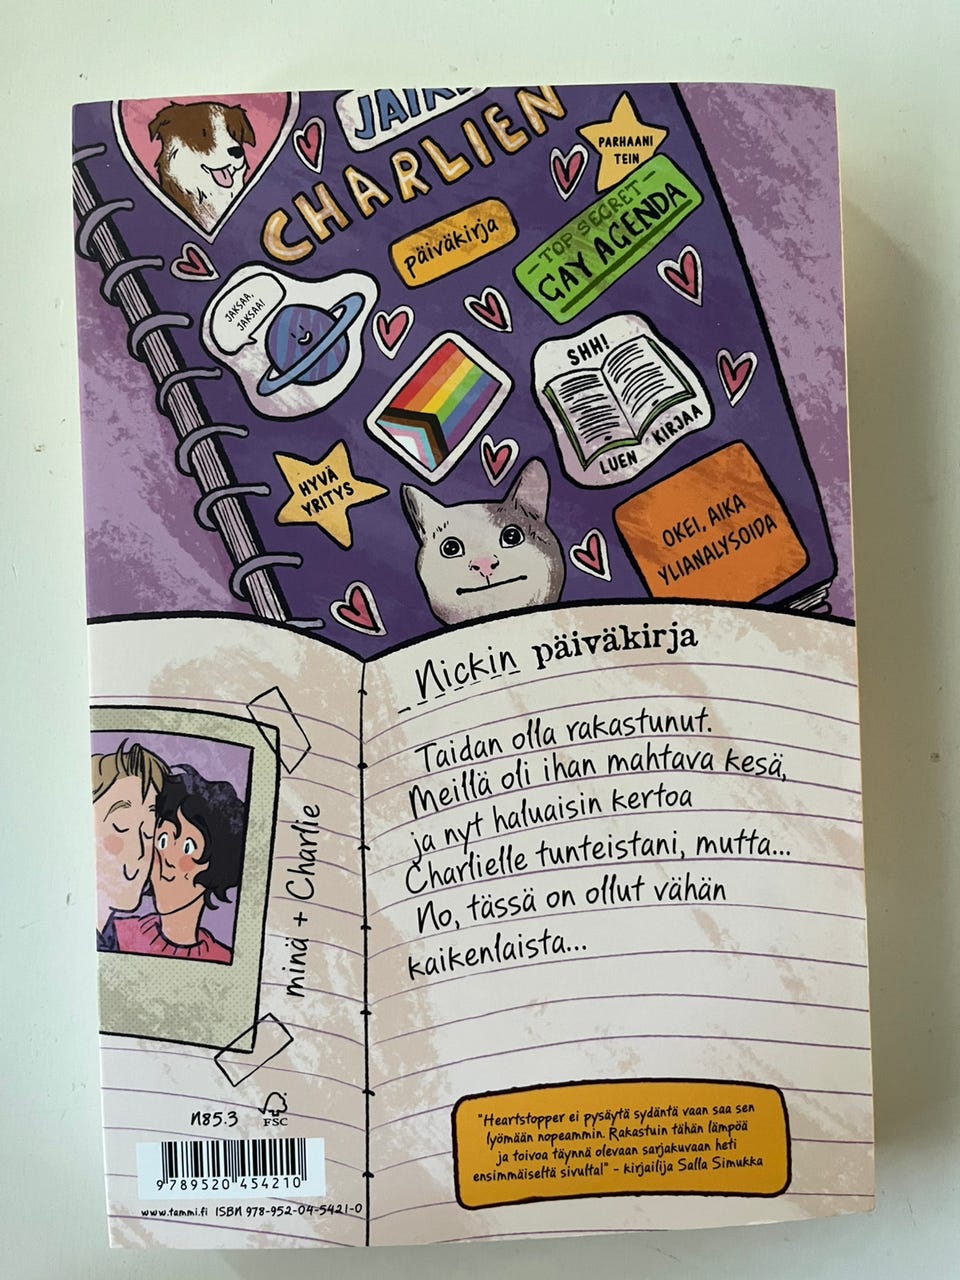 CHARLIEN
PARHAANI
TEIN
päiväkirja
-TOP SECRET-
GAY AGENDA
JAKSAA,
JAKSAA!
SHH!
LUEN KIRJAA
HYVÄ
YRITYS
OKEI, AIKA
YLIANALYSOIDA
Nickin päiväkirja
Taidan olla rakastunut.
Meillä oli ihan mahtava kesä,
ja nyt haluaisin kertoa
Charlielle tunteistani, mutta...
No, tässä on ollut vähän
kaikenlaista...
minä + Charlie
N85.3
FSC
9 789520 454210
www.tammi.fi ISBN 978-952-04-5421-0
"Heartstopper ei pysäytä sydäntä vaan saa sen
lyömään nopeammin. Rakastuin tähän lämpöä
ja toivoa täynnä olevaan sarjakuvaan heti
ensimmäiseltä sivulta!" - kirjailija Salla Simukka